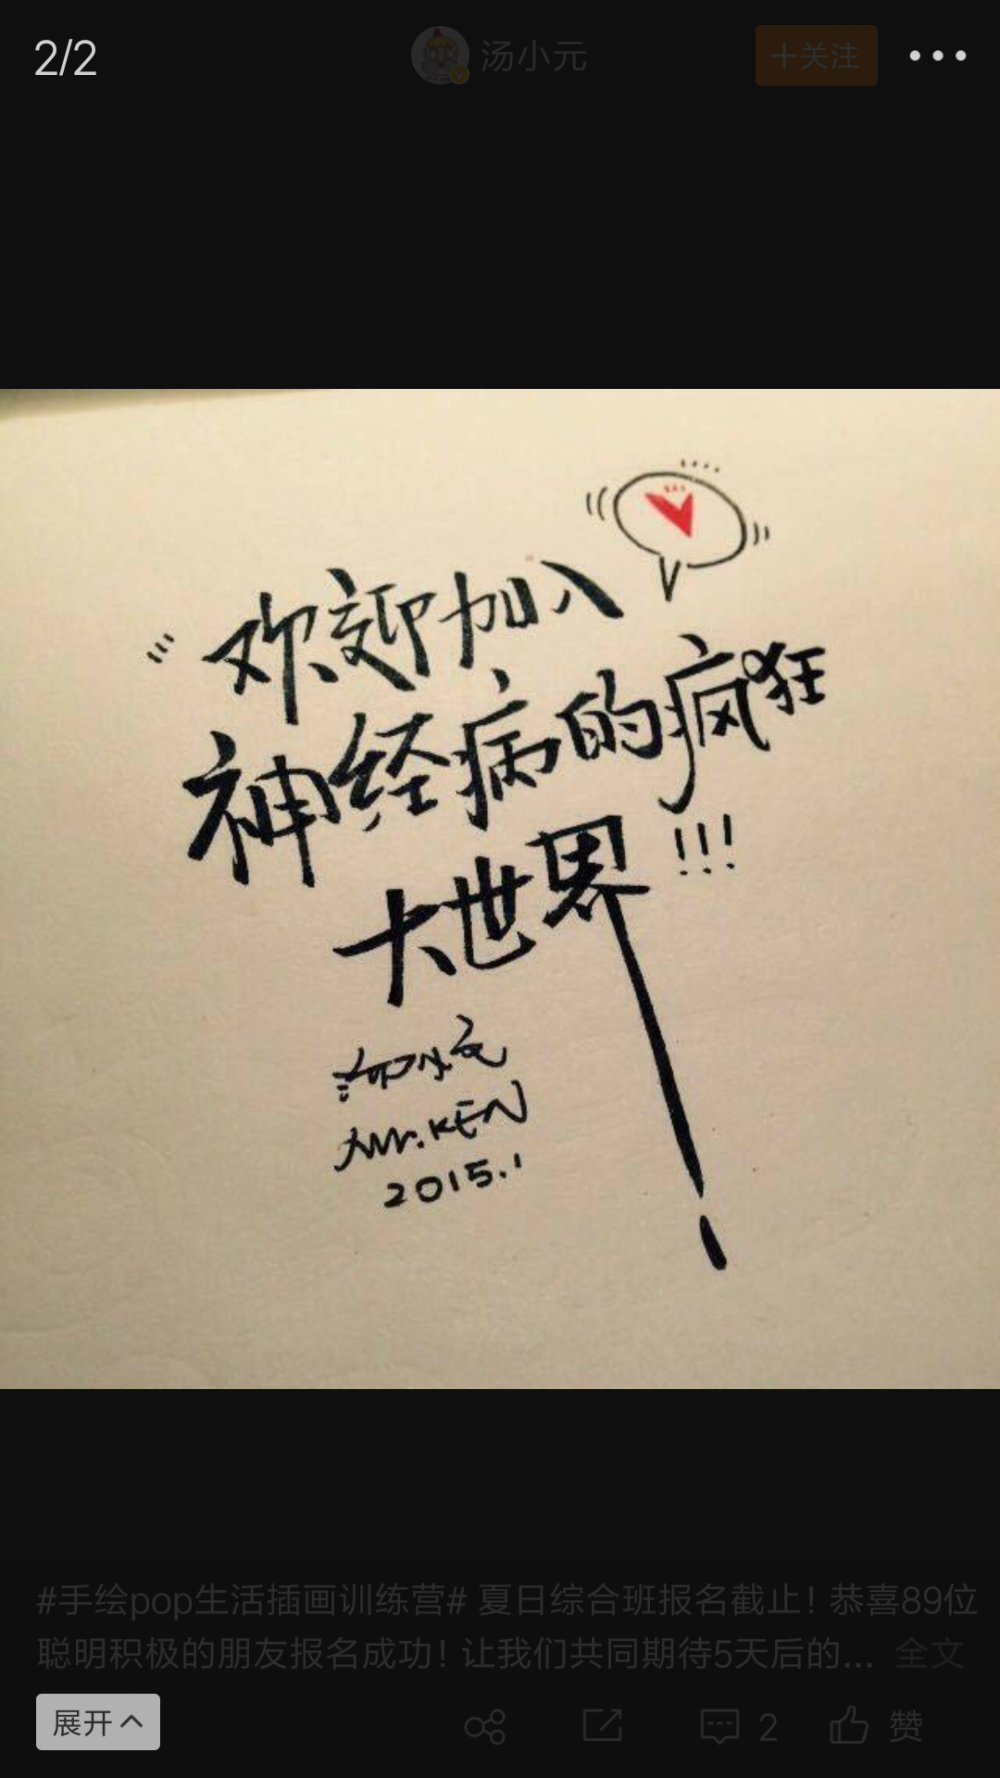 2/2
汤小元
十关注
欢迎加入
神经病的疯狂
大世界!!!
汤小元
Mr.KEN
2015.1
#手绘pop生活插画训练营# 夏日综合班报名截止！恭喜89位
聪明积极的朋友报名成功！让我们共同期待5天后的... 全文
展开
2
赞